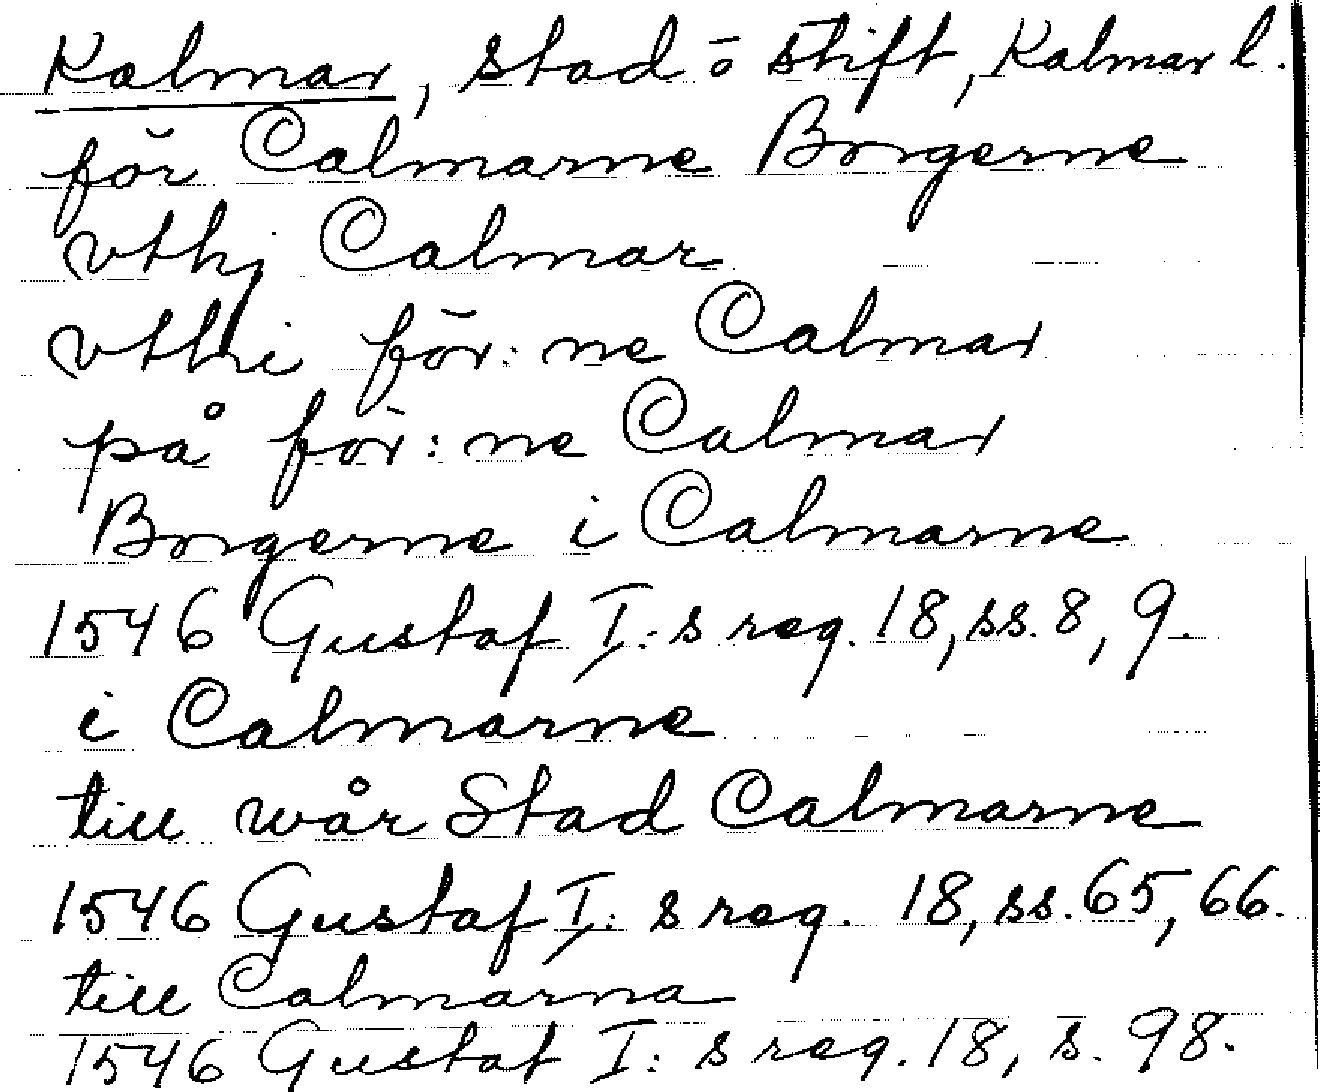 Kalmar, stad o stift, Kalmar l.
för Calmarne Borgerne
vthj Calmar
vthi för:ne Calmar
på för:ne Calmar
Borgerne i Calmarne
1546 Gustaf I:s reg. 18, ss. 8, 9.
i Calmarne
till wår Stad Calmarne
1546 Gustaf I:s reg. 18, ss. 65, 66.
till Calmarna
1546 Gustaf I:s reg. 18, s. 98.